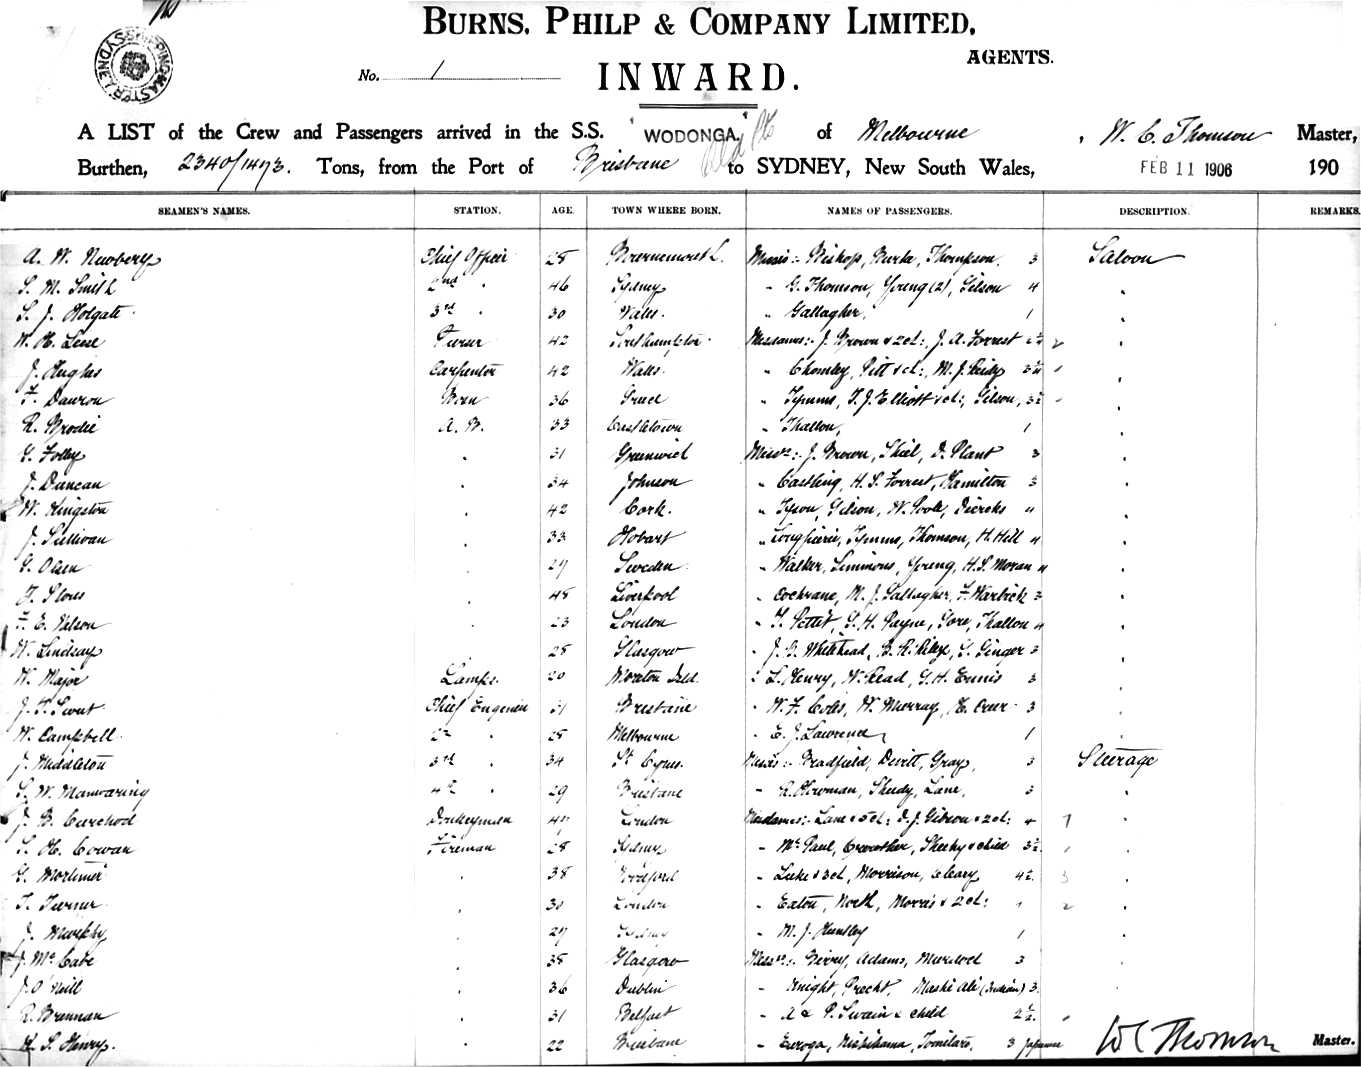 BURNS, PHILP & COMPANY LIMITED,
AGENTS.
No. 1
INWARD.
SHIPPING MASTER SYDNEY
A LIST of the Crew and Passengers arrived in the S.S. "WODONGA." of Melbourne, W. C. Thomson Master,
Burthen, 2340/1473. Tons, from the Port of Brisbane to SYDNEY, New South Wales, FEB 11 1906 190
SEAMEN'S NAMES. STATION. AGE. TOWN WHERE BORN. NAMES OF PASSENGERS. DESCRIPTION. REMARKS.
A. W. Newbery Chief Officer 28 Misses:- Bishop, Burke, Thompson, 3 Saloon
S. M. Smith 2nd " 46 Sydney " G. Thomson, Young (2), Gilson 4 "
S. J. Holgate 3rd " 30 Wales. " Gallagher, 1 "
W. H. Lese Purser 42 Southampton Mesdames:- J. Brown & 2 ch:, J. A. Forrest 2 "
J. Hughes Carpenter 42 Wales " Chomley, Pitt & ch:, M. J. 3½ "
F. Dawson 36 " Tymms, T. J. Elliott & ch:, Gilson, 3½ "
R. Brodie A. B. 33 Castletown " Thallon, 1 "
G. Folley " 31 Greenwich Messrs:- J. Brown, Shiel, D. Plant 3 "
J. Duncan " 34 Johnson " Castling, H. S. Forrest, Hamilton 3 "
W. Kingston " 42 Cork. " Tyson, Gilson, W. Poole, Diercks 4 "
J. Sullivan " 33 Hobart " Tymms, Thomson, H. Hill 4 "
G. Olsen " 29 Sweden " Walker, Simmons, Young, H. S. Moran 4 "
" 48 Liverpool " Cochrane, M. J. Gallagher, F. Warbick 3 "
F. C. Nelson " 23 London " T. Pettit, G. H. Payne, Gore, Thallon 4 "
W. Lindsay " 28 Glasgow " Whitehead, Ginger 3 "
W. Major Lamps. 20 Moreton Isld. " L. Henry, W. Read, G. H. Ennis 3 "
Chief Engineer 31 Brisbane " W. F. Coles, W. Murray, H. Creer 3 "
W. Campbell 2nd " 28 Melbourne " E. J. Lawrence, 1 "
J. Middleton 3rd " 34 Misses:- Bradfield, Devitt, Gray, 3 Steerage
S. W. Manwaring 4th " 29 Brisbane " Sheedy, Lane, 3 "
Donkeyman London Mesdames:- Lane & 5 ch: D. J. Gibson & 2 ch: 4 7 "
S. H. Cowan Fireman 28 Sydney " McPaul, Crowther, Sheehy & child 3½ "
G. Mortimer " 38 " Luke & 3 ch, Morrison, Cleary 4½ 3 "
T. Turner " 30 London " Eaton, North, Morris & 2 ch: 2 "
J. Murphy " 29 Sydney " M. J. Huntley 1 "
J. McCabe " 38 Glasgow Messrs:- Berry, Adams, Murdoch 3 "
J. O'Neill " 36 Dublin " Knight, Precht, Mashi Ali (Indian) 3. "
R. Brennan " 31 Belfast " A & P. Swain & child 2½ "
H. S. Henry. " 22 Brisbane " Euroga, Nishihama, Tomitaro, 3 Japanese
W C Thomson Master.